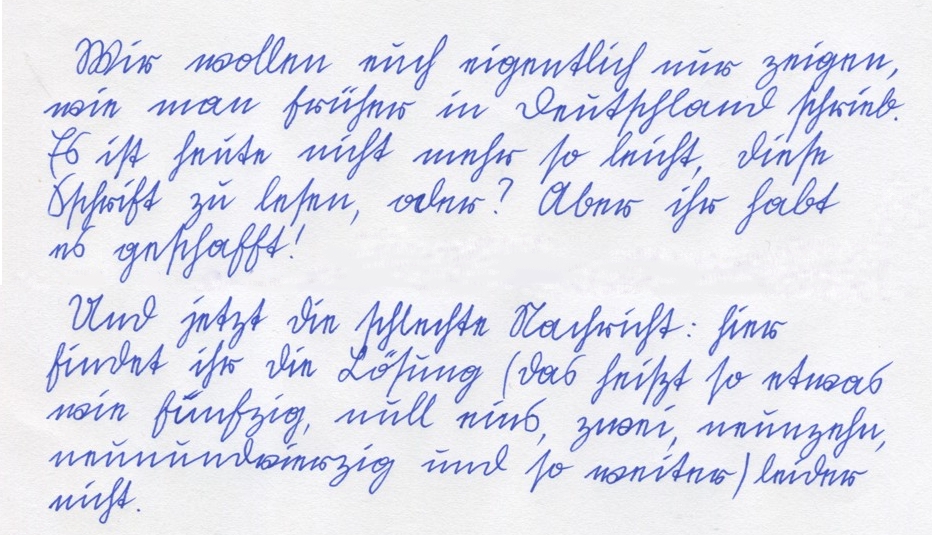 Wir wollen euch eigentlich nur zeigen,
wie man früher in Deutschland schrieb.
Es ist heute nicht mehr so leicht, diese
Schrift zu lesen, oder? Aber ihr habt
es geschafft!
Und jetzt die schlechte Nachricht: hier
findet ihr die Lösung (das heißt so etwas
wie fünfzig, null eins, zwei, neunzehn,
neunundvierzig und so weiter) leider
nicht.